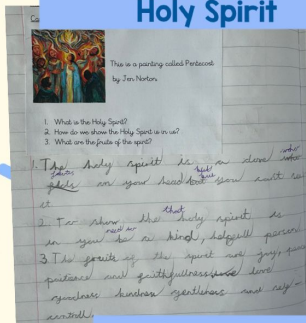 Holy Spirit
This is a painting called Pentecost
by Jen Norton.
1. What is the Holy Spirit?
2. How do we show the Holy Spirit is in us?
3. What are the fruits of the spirit?
1. The holy spirit is a dove who
on your head but you can't
it
2. To show that the holy spirit is
in you be a kind, helpfull person
3. The fruits of the spirit are joy,
patience and faithfullness love
goodness kindness gentleness and self-
controll.